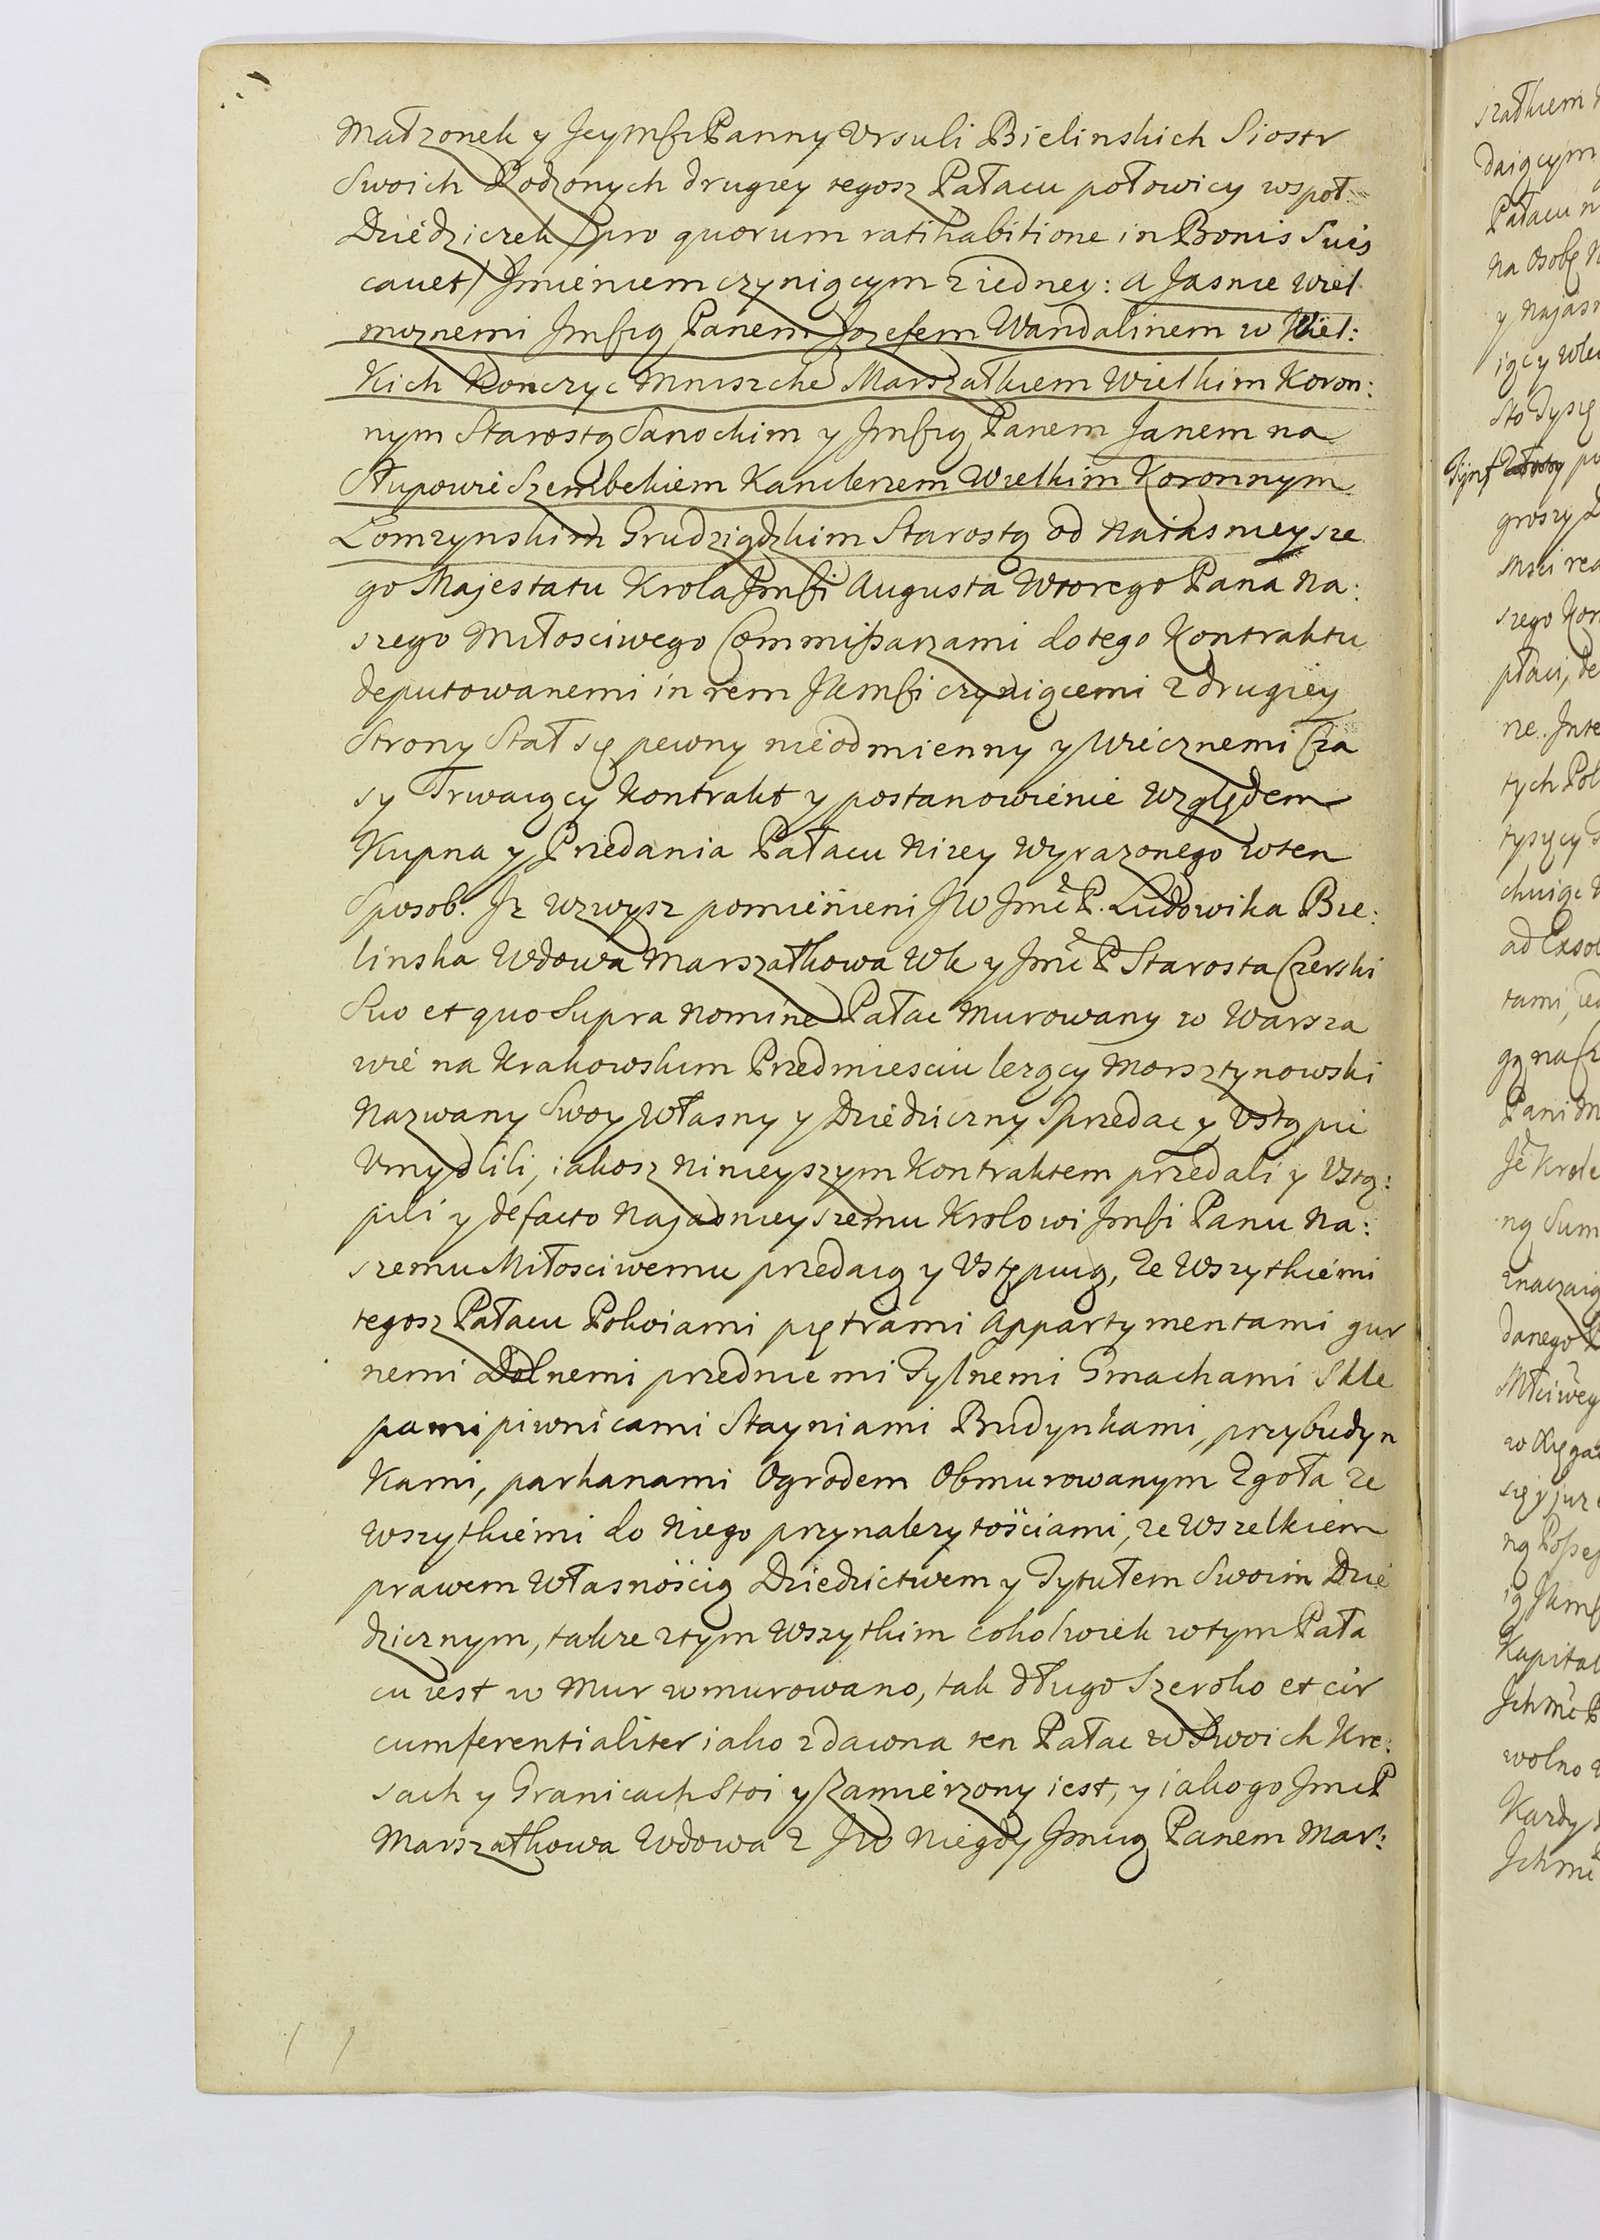 Małzonek y Jeymści Panny Vrsuli Bielinskich Siostr
Swoich Rodzonych drugiey tegosz Pałacu połowicy wspoł
Dziedziczek /pro quorum ratihabitione in Bonis Suis
cauet/ Jmieniem czyniącym z iedney: a Jasnie Wiel
moznemi Jmścią Panem Jozefem Wandalinem w Wiel:
Kich Konczyc Mniszche Marszałkiem Wielkim Koron:
nym Starostą Sanockim y Jmścią Panem Janem na
Słupowie Szembekiem Kanclerzem Wielkim Koronnym
Łomzynskim Grudziądzkim Starostą od Naiasnieysze
go Majestatu Krola Jmści Augusta Wtorego Pana Na:
szego Miłosciwego Commißarzami do tego Kontraktu
deputowanemi in rem JKmści czyniącemi z drugiey
Strony Stał się pewny nieodmienny y Wiecznemi Cza
sy Trwaiący Kontrakt y postanowienie Względem
Kupna y Przedania Pałacu Nizey Wyrazonego w ten
Sposob. Jz wzwysz pomienieni JW Jmć P. Ludowika Bie:
linska Wdowa Marszałkowa Wk y Jmć P Starosta Czerski
Suo et quo Supra Nomine Pałac Murowany w Warsza
wie na Krakowskim Przedmiesciu lezący Morsztynowski
Nazwany Swoy Własny y Dziedziczny Sprzedac y Vstąpic
Vmyslili, iakosz Ninieyszym Kontraktem przedali y Vstą:
pili y defacto Najasnieyszemu Krolowi Jmści Panu Na:
szemu Miłosciwemu przedaią y Vstępuią, ze Wszytkiemi
tegosz Pałacu Pokoiami piętrami Appartymentami gur
nemi Dolnemi przedniemi Tylnemi Gmachami Skle
pami piwnicami Stayniami Budynkami, przybudyn
Kami, parkanami Ogrodem Obmurowanym Zgoła ze
Wszytkiemi do Niego przynalezytosciami, ze Wszelkiem
prawem Własnoscią Dziedzictwem y Tytułem Swoim Dzie
dzicznym, takze z tym Wszytkim cokolwiek w tym Pała
cu iest w Mur wmurowano, tak długo Szeroko et cir
cumferentialiter iako zdawna ten Pałac w Swoich Kre:
sach y Granicach Stoi y Zamierzony iest, y iako go Jmć P
Marszałkowa Wdowa z JW Niegdy Jmcią Panem Mar: